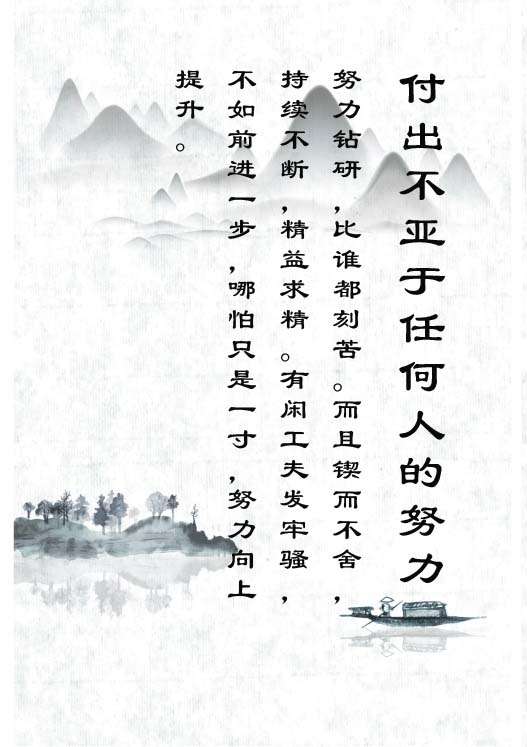 付出不亚于任何人的努力
努力钻研，比谁都刻苦。而且锲而不舍，
持续不断，精益求精。有闲工夫发牢骚，
不如前进一步，哪怕只是一寸，努力向上
提升。